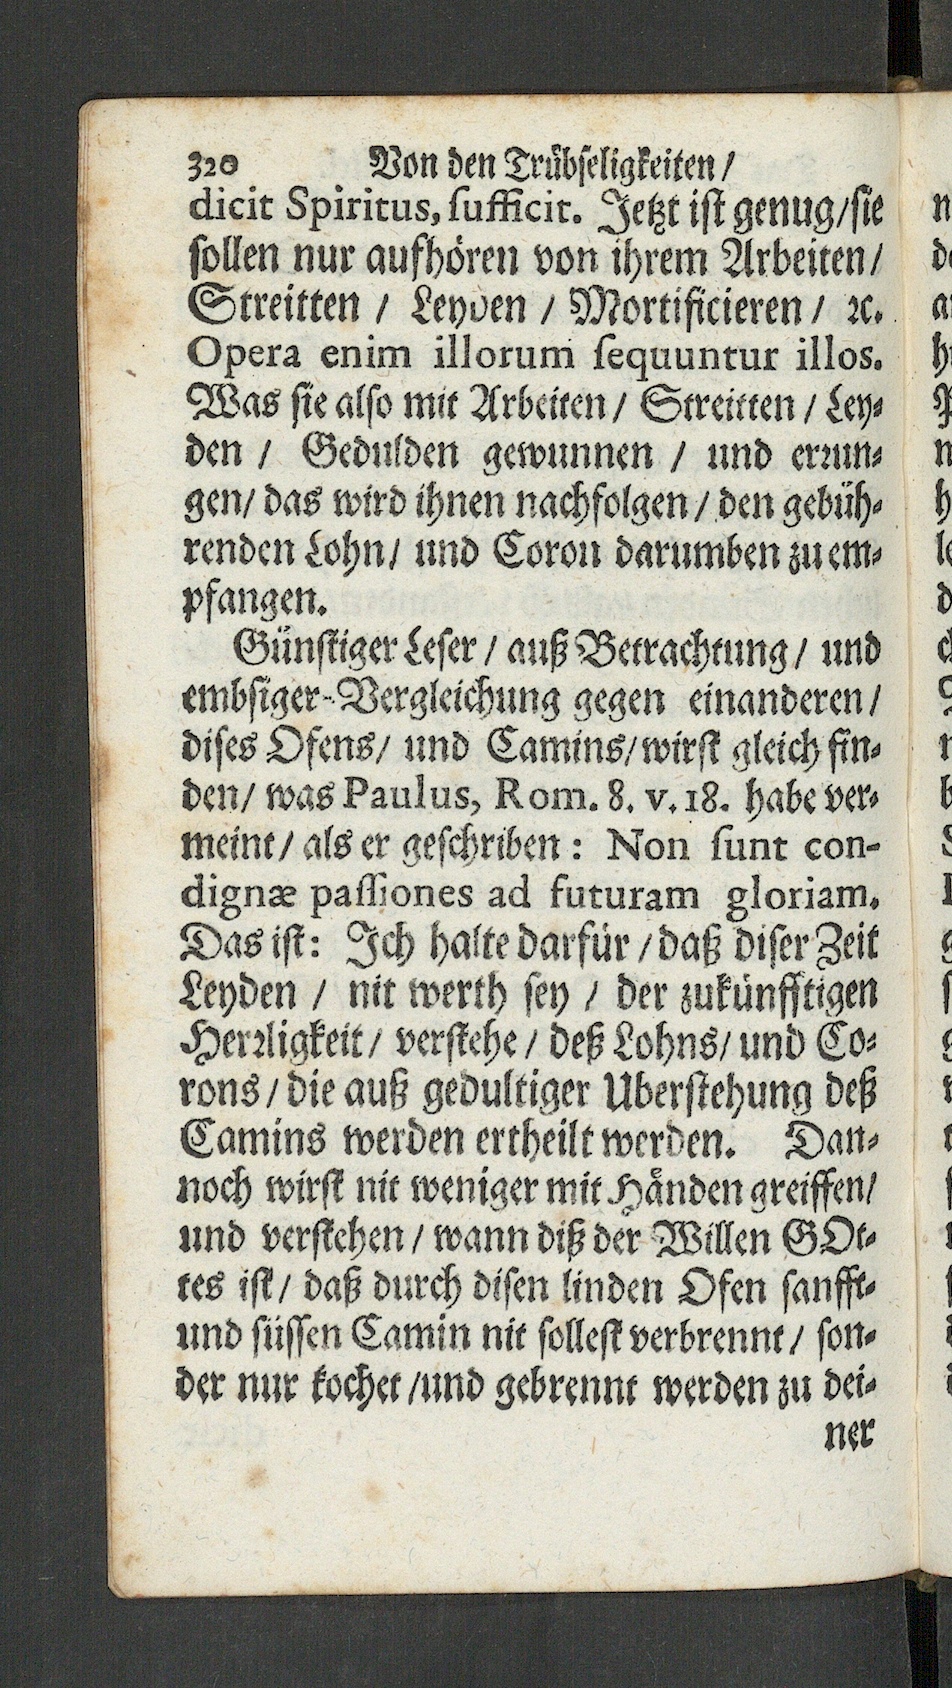 320 Von den Trübseligkeiten /
dicit Spiritus, sufficit. Jetzt ist genug/sie
sollen nur aufhören von ihrem Arbeiten/
Streitten / Leyden / Mortificieren / ꝛc.
Opera enim illorum sequuntur illos.
Was sie also mit Arbeiten/ Streitten / Ley-
den / Gedulden gewunnen / und errun-
gen/ das wird ihnen nachfolgen / den gebüh-
renden Lohn/ und Coron darumben zu em-
pfangen.
Günstiger Leser / auß Betrachtung/ und
embsiger-Vergleichung gegen einanderen/
dises Ofens/ und Camins/wirst gleich fin-
den/ was Paulus, Rom. 8. v. 18. habe ver-
meint / als er geschriben: Non sunt con-
dignæ passiones ad futuram gloriam.
Das ist: Ich halte darfür / daß diser Zeit
Leyden / nit werth sey / der zukünfftigen
Herrligkeit/ verstehe / deß Lohns/ und Co-
rons / die auß gedultiger Uberstehung deß
Camins werden ertheilt werden. Dan-
noch wirst nit weniger mit Händen greiffen/
und verstehen / wann diß der Willen GOt-
tes ist/ daß durch disen linden Ofen sanfft-
und süssen Camin nit sollest verbrennt / son-
der nur kochet /und gebrennt werden zu dei-
ner